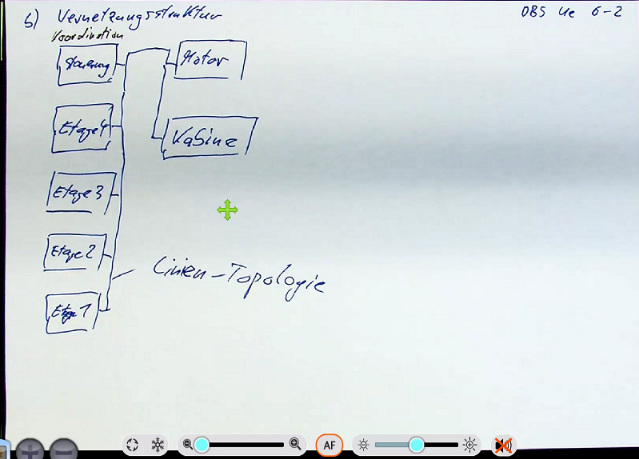 b) Vernetzungsstruktur
DBS Ue 6-2
Koordination
Steuerung
Motor
Etage 4
Kabine
Etage 3
Etage 2
Linien-Topologie
Etage 1
AF